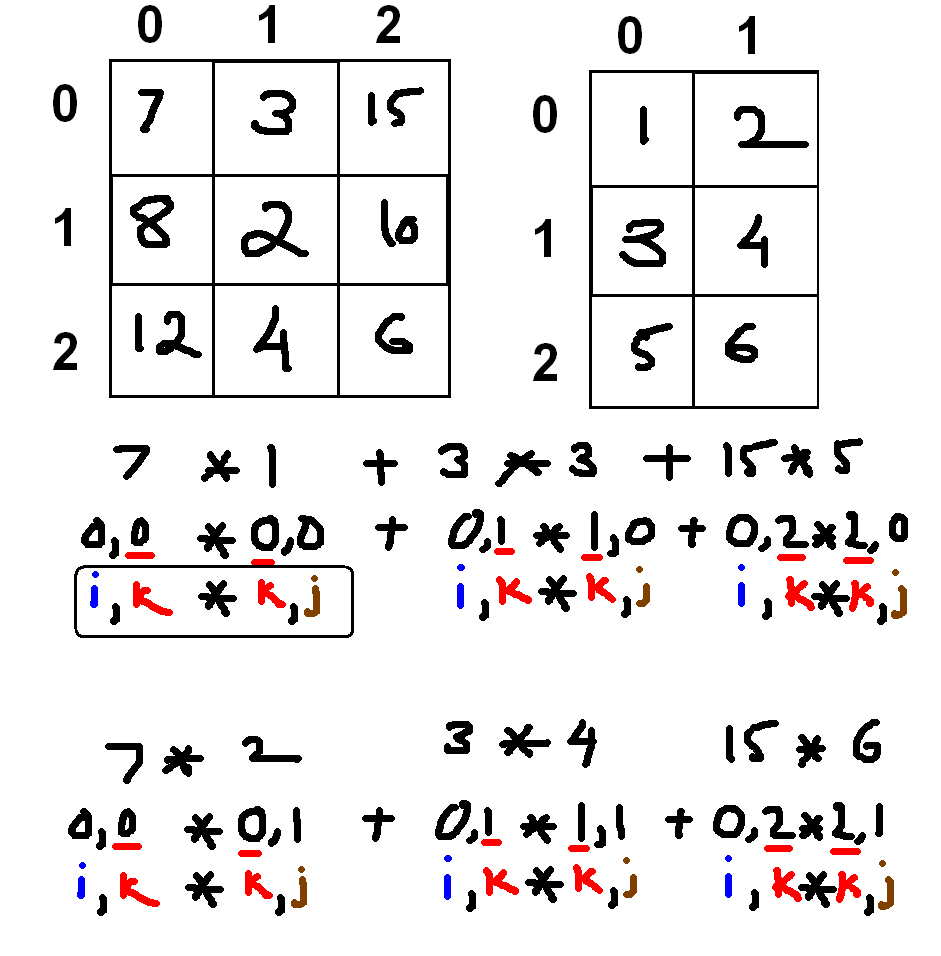 0 1 2 0 1
0 7 3 15 0 1 2
1 8 2 10 1 3 4
2 12 4 6 2 5 6
7 * 1 + 3 * 3 + 15 * 5
0,0 * 0,0 + 0,1 * 1,0 + 0,2 * 2,0
i,k * k,j i,k * k,j i,k * k,j
7 * 2 3 * 4 15 * 6
0,0 * 0,1 + 0,1 * 1,1 + 0,2 * 2,1
i,k * k,j i,k * k,j i,k * k,j